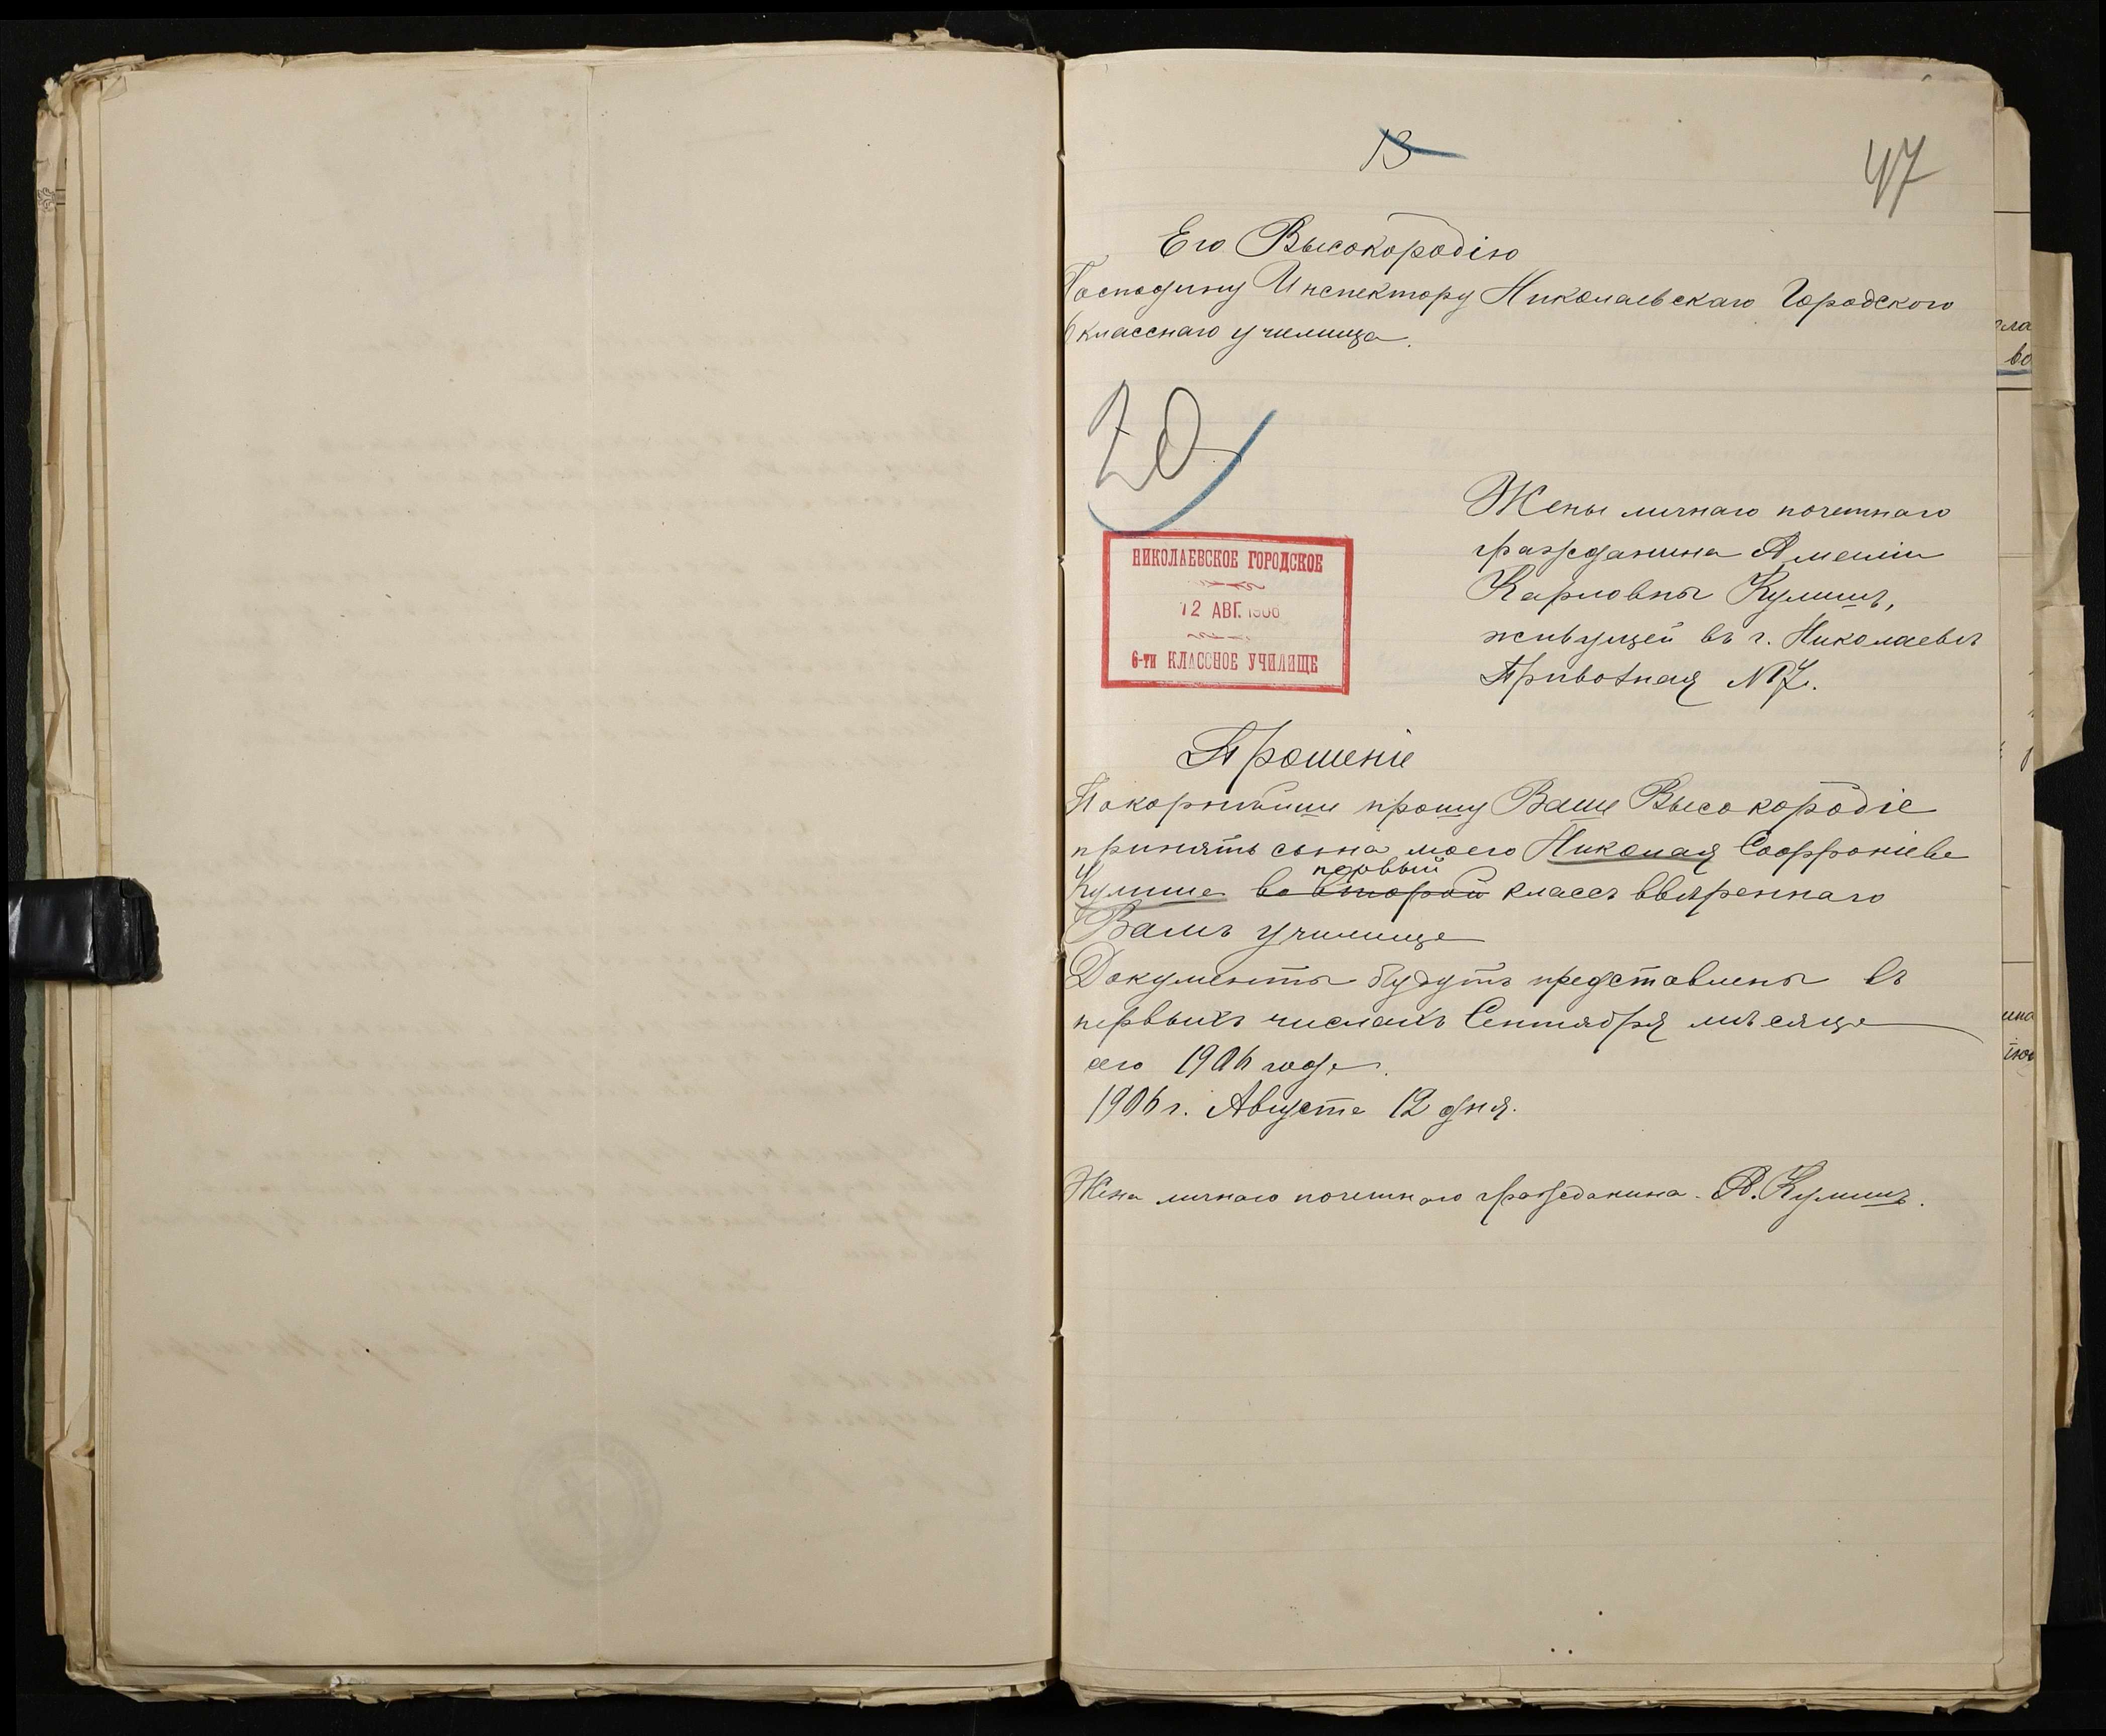 13
47
Его Высокородію
Господину Инспектору Николаевскаго Городского
6 класснаго училища.
20
Жены личнаго почетнаго
гражданина Амеліи
Карловны Кулишъ,
живущей въ г. Николаевѣ
НИКОЛАЕВСКОЕ ГОРОДСКОЕ
12 АВГ. 1906
6-ти КЛАССНОЕ УЧИЛИЩЕ
№ 7.
Прошеніе
Покорнѣйше прошу Ваше Высокородіе
принять сына моего Николая Софроніева
первый
Кулиша во второй классъ ввѣреннаго
Вамъ училища
Документы будутъ представлены въ
первыхъ числахъ Сентября мѣсяца
сего 1906 года.
1906 г. Августа 12 дня.
Жена личнаго почетнаго гражданина А. Кулишъ.